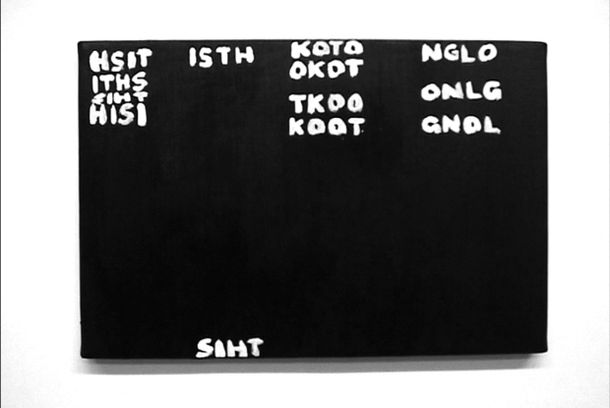 HSIT ISTH KOTO NGLO
ITHS OKOT ONLG
SIHT TKOO GNOL
HISI KOOT
SIHT